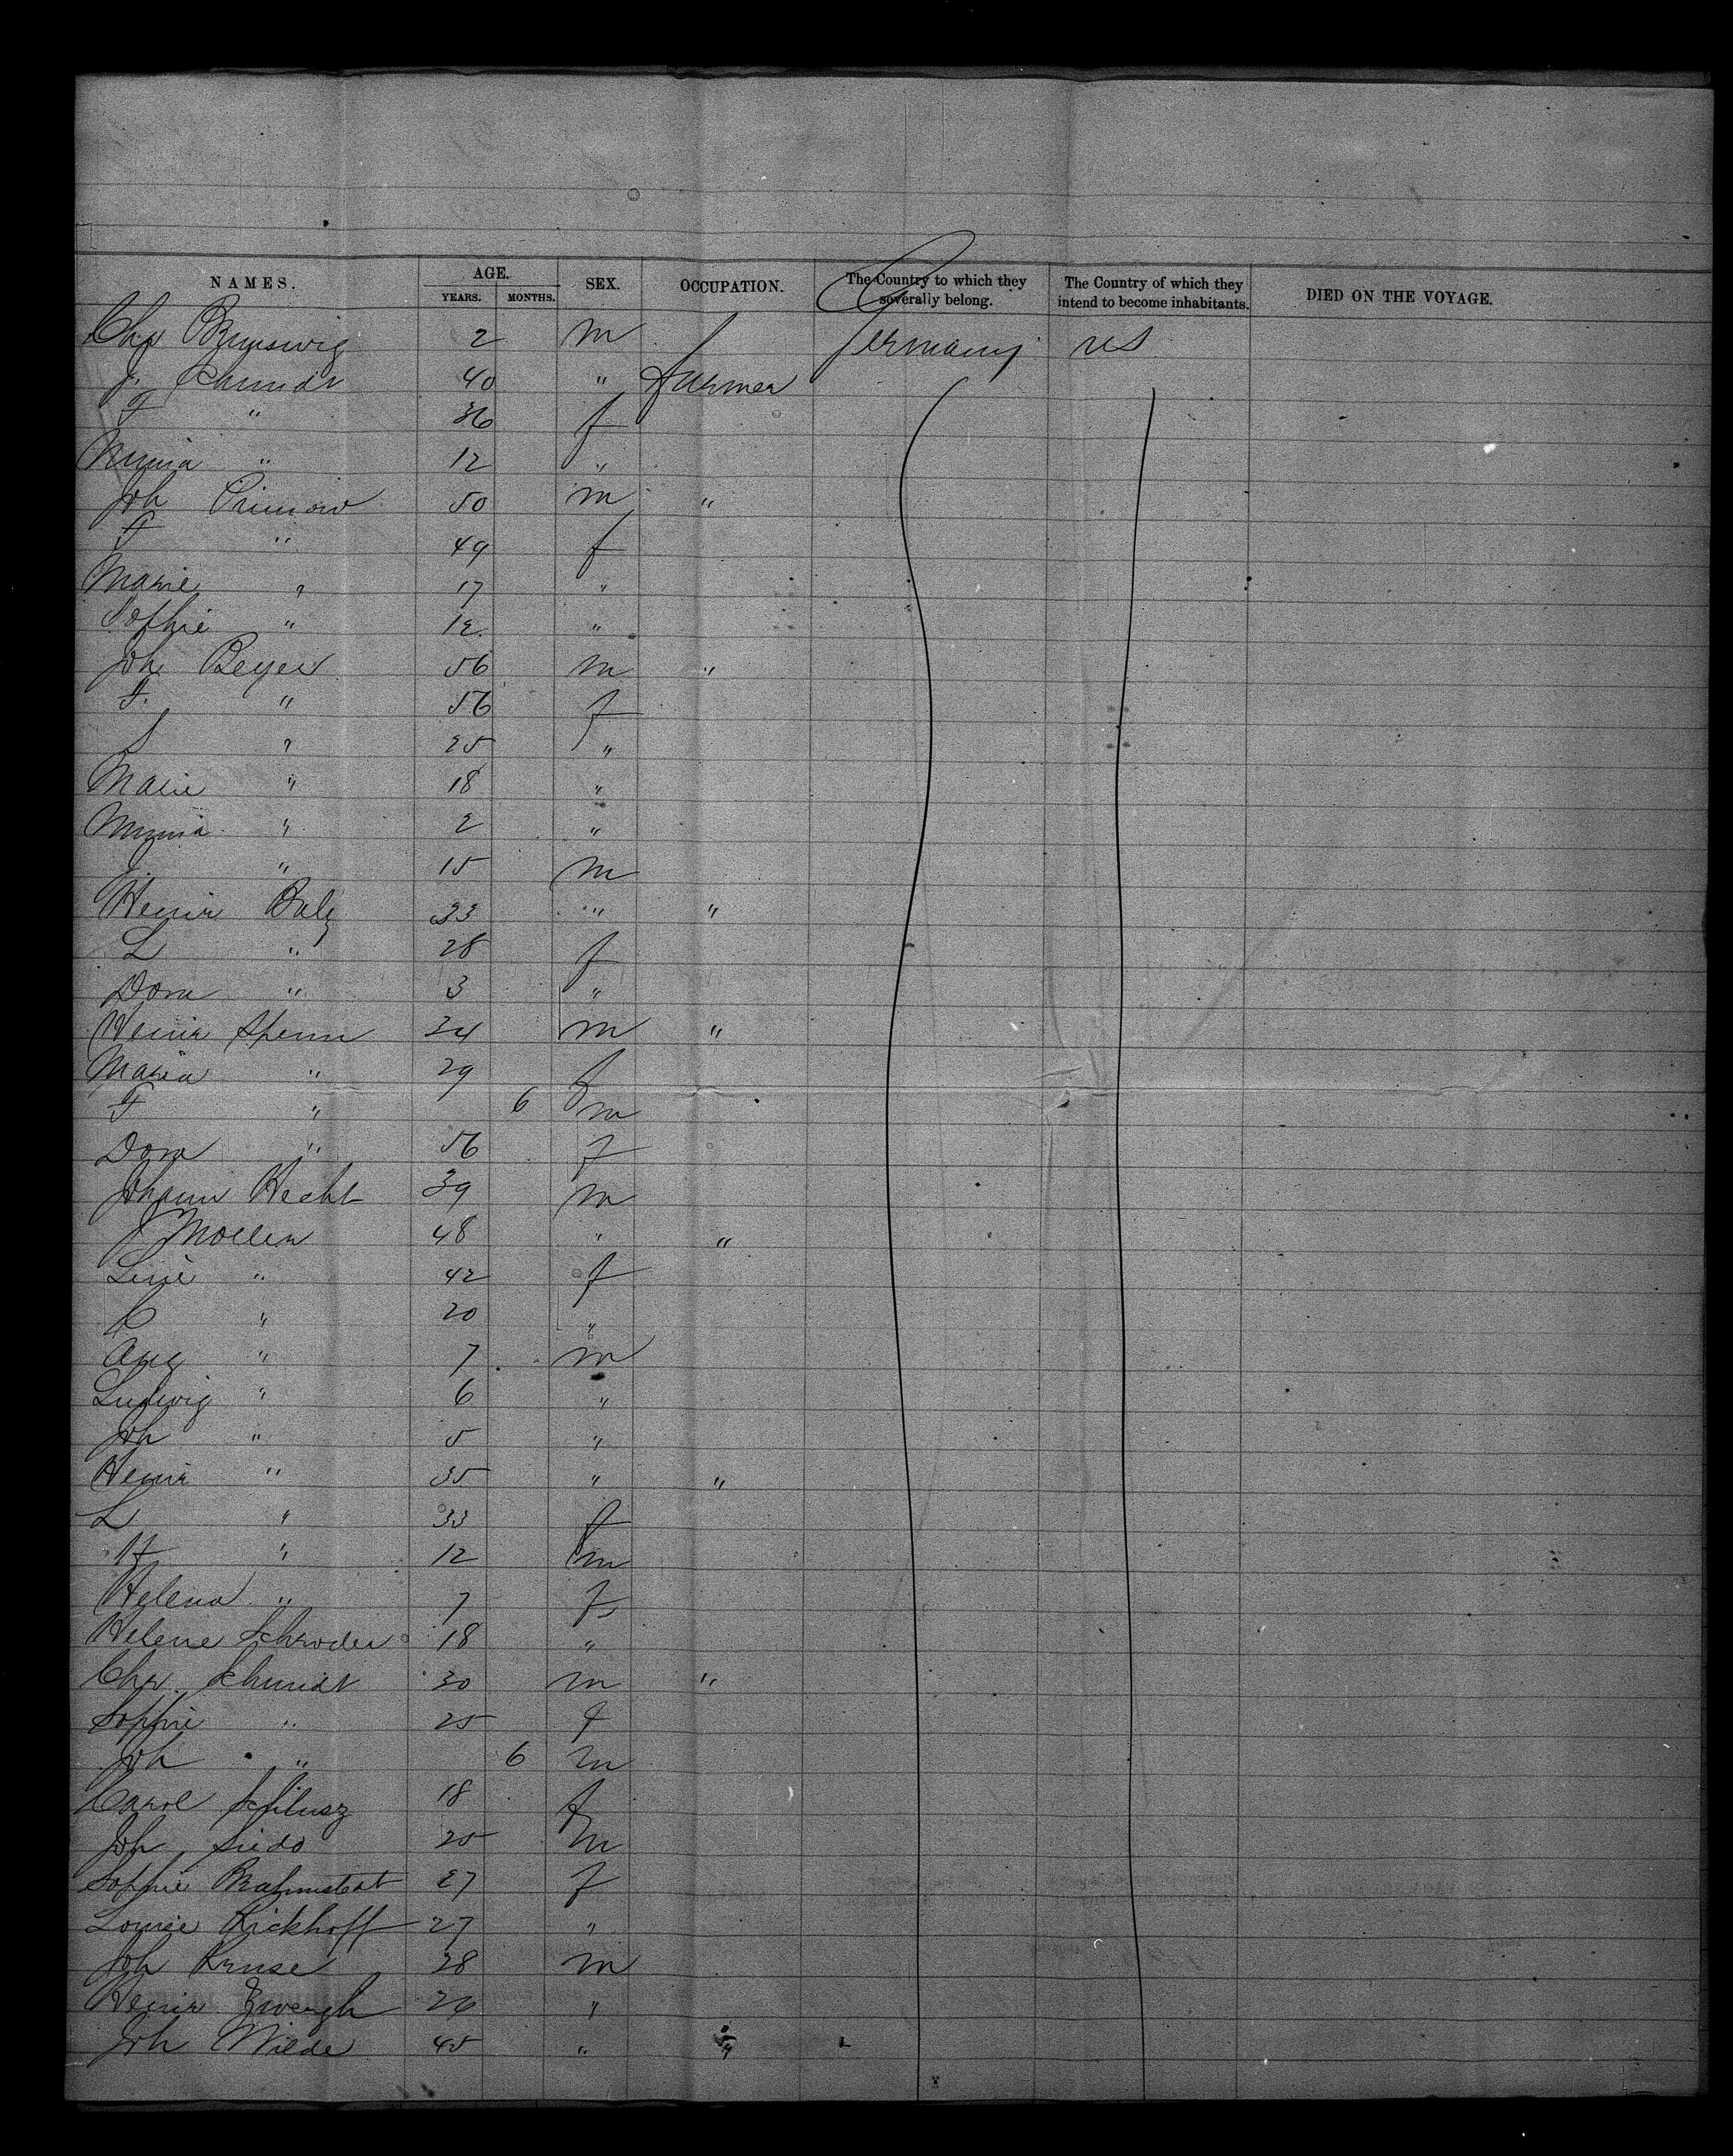 NAMES. AGE. YEARS. MONTHS. SEX. OCCUPATION. The Country to which they severally belong. The Country of which they intend to become inhabitants. DIED ON THE VOYAGE.
Chr Brunswig 2 m Germany US
J. Schmidt 40 " farmer
F " 36 f
Minna " 12 "
Joh Primow 50 m "
F " 49 f
Marie " 17 "
Sophie " 12 "
Joh Beyer 56 m "
F. " 56 f
S " 25 "
Marie " 18 "
Minna " 2 "
J " 15 m
Heinr 33 " "
L " 28 f
Dora " 3 "
Heinr Spenn 34 m "
Maria " 29 f
F " 6 m
Dora " 56 f
Johann Hecht 39 m
J Moller 48 " "
Line " 42 f
C " 20 "
Aug " 7 m
Ludwig " 6 "
Joh " 5 "
Heinr " 35 " "
L " 33 f
H " 12 m
Helena " 7 f
Helene Schroder 18 "
Chr. Schmidt 30 m "
Sophie " 25 f
Joh " 6 m
Carol 18 f
Joh Siedo 25 m
Sophie Brahmstedt 27 f
Louise Rickhoff 27 "
Joh Kruse 28 m
Heinr 26 "
Joh Wilde 45 " "